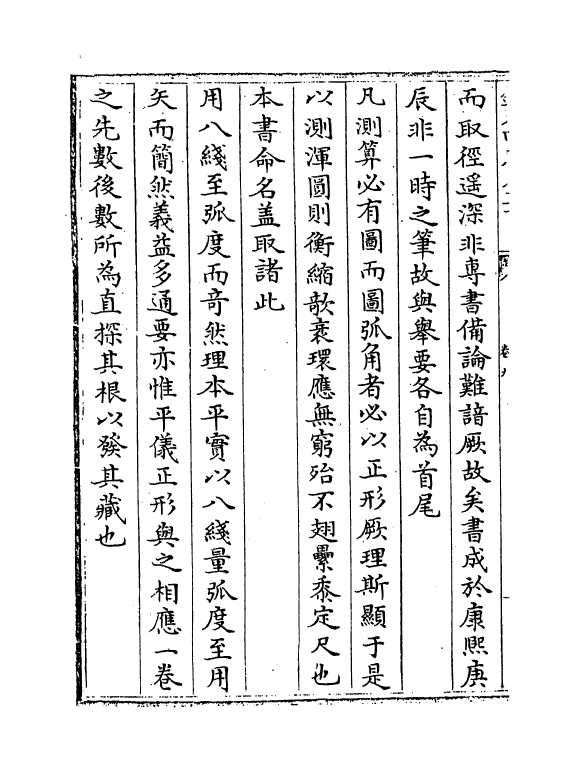 而取徑遥深非専書備論難諳厥故矣書成於康熙庚
辰非一時之筆故與舉要各自為首尾
凡測算必有圖而圖弧角者必以正形厥理斯顯于是
以測渾圖則衡縮欹衺環應無窮殆不翅纍黍定尺也
本書命名盖取諸此
用八綫至弧度而竒然理本平實以八綫量弧度至用
矢而簡然義益多通要亦惟平儀正形與之相應一卷
之先數後數所為直探其根以發其藏也